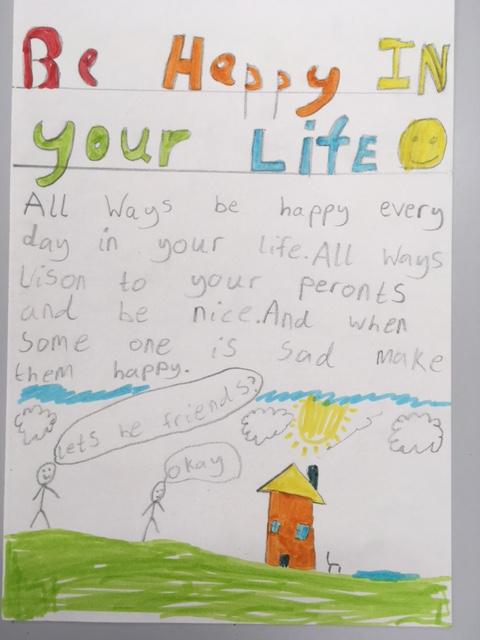 Be Happy IN
your Life
All Ways be happy every
day in your life. All Ways
Lison to your peronts
and be nice. And when
some one is sad make
them happy.
lets be friends?
okay